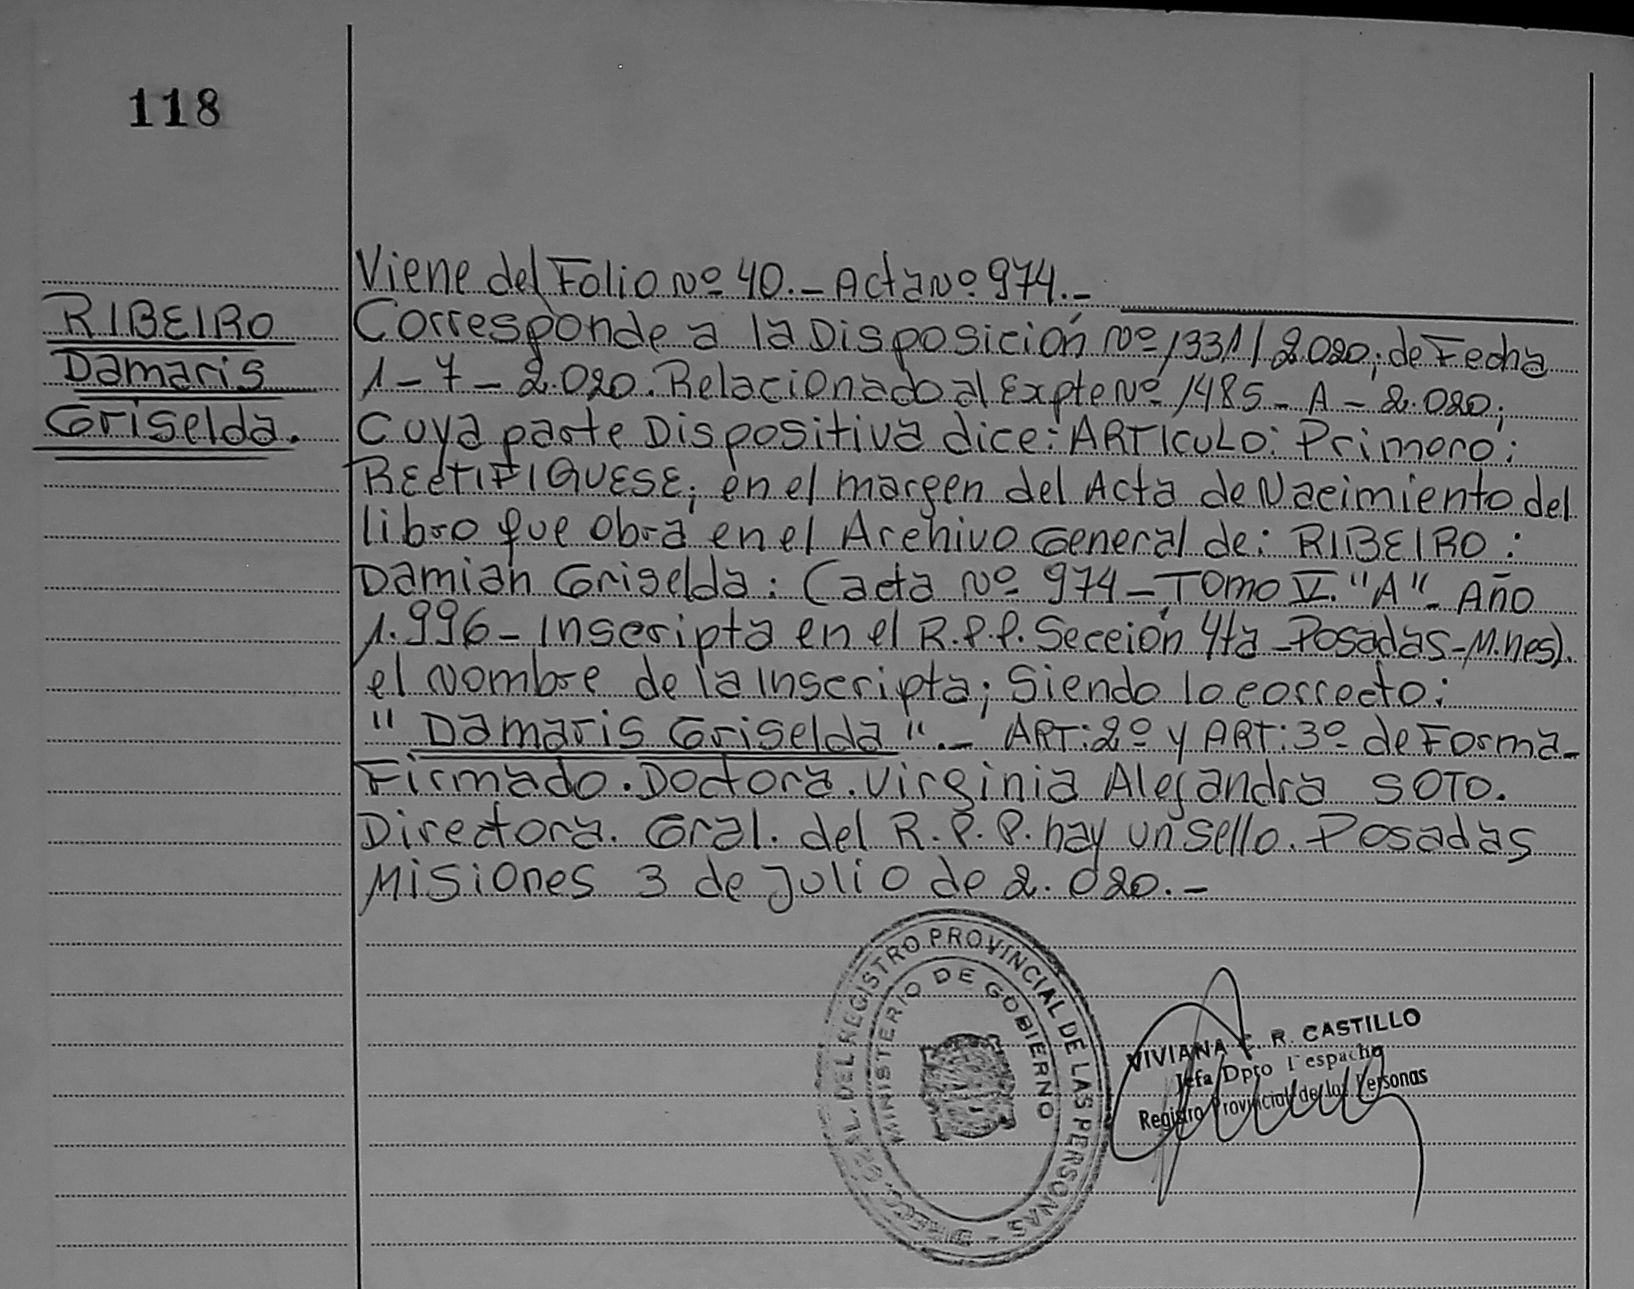 118
RIBEIRO
Damaris
Griselda.
Viene del Folio Nº 40.- Acta Nº 974.-
Corresponde a la Disposición Nº 1331/2.020; de Fecha
1-7-2.020. Relacionado al Expte Nº 1485-A-2.020;
Cuya parte Dispositiva dice: ARTICULO: Primero:
RECTIFIQUESE; en el margen del Acta de Nacimiento del
libro que obra en el Archivo General de: RIBEIRO:
Damian Griselda: (acta Nº 974-Tomo V. "A". Año
1.996- Inscripta en el R.P.P. Sección 4ta-Posadas-M.nes).
el Nombre de la Inscripta; Siendo lo correcto:
"Damaris Griselda".- ART: 2º y ART: 3º de Forma-
Firmado. Doctora. Virginia Alejandra SOTO.
Directora. Gral. del R.P.P. hay un sello. Posadas
Misiones 3 de Julio de 2.020.-
DIRECC. GRAL. DEL REGISTRO PROVINCIAL DE LAS PERSONAS -
MINISTERIO DE GOBIERNO
VIVIANA R. CASTILLO
Jefa Dpto Despacho
Registro Provincial de las Personas